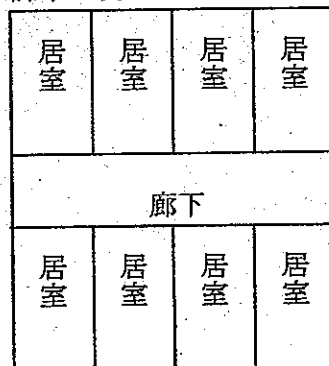 居室 居室 居室 居室
廊下
居室 居室 居室 居室